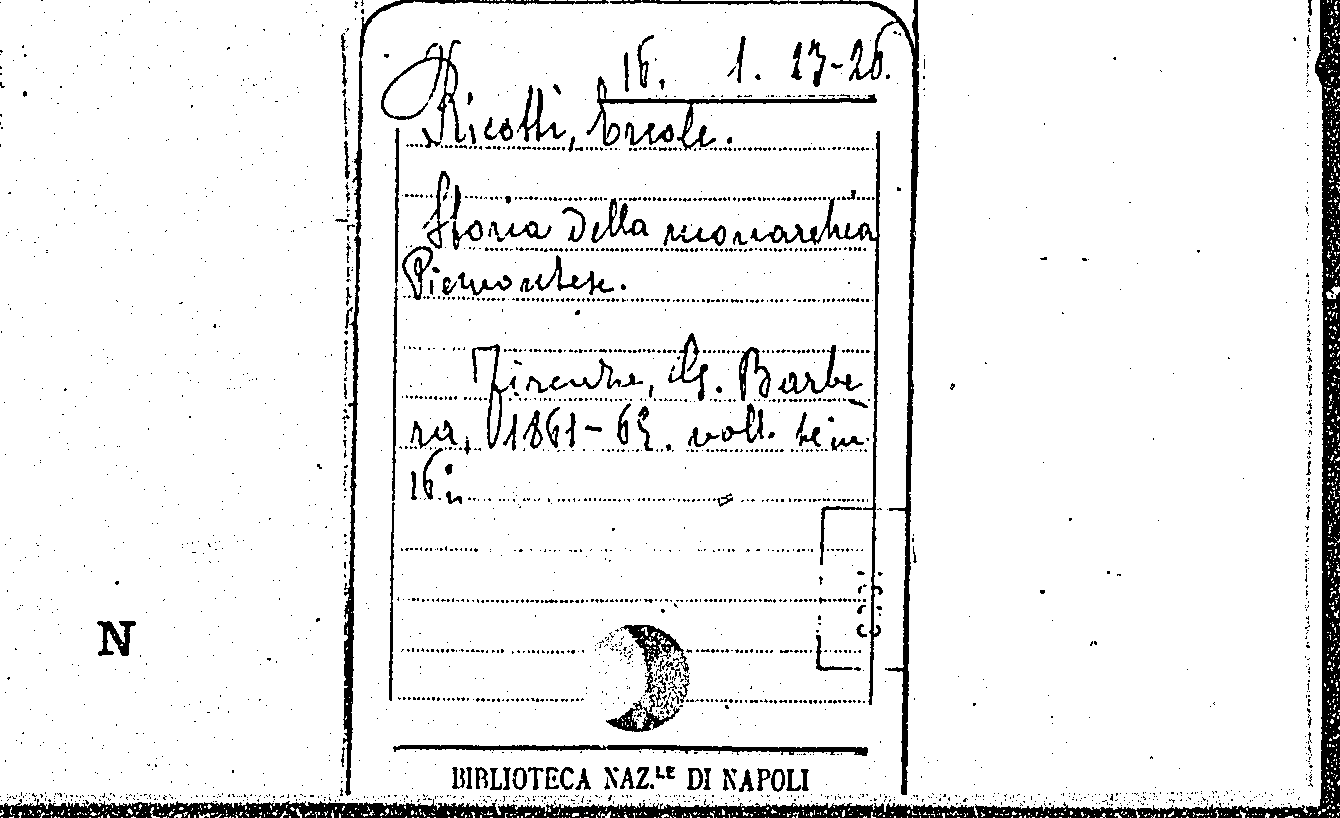 16. 1. 23-26.
Ricotti, Ercole.
Storia della monarchia
Piemontese.
Firenze, G. Barbè
ra, 1861-69. voll. sei in
16°:
N
BIBLIOTECA NAZ.LE DI NAPOLI